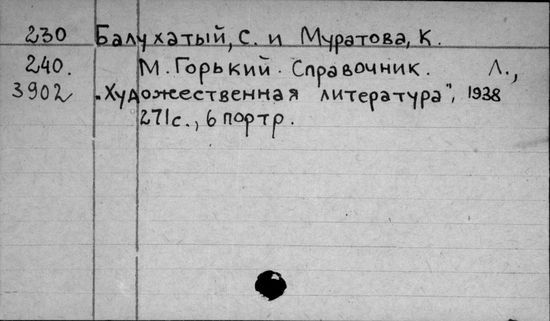 230 Балухатый, С. и Муратова, К.
240. М. Горький. Справочник. Л.,
3902 „Художественная литература", 1938
271 с., 6 портр.